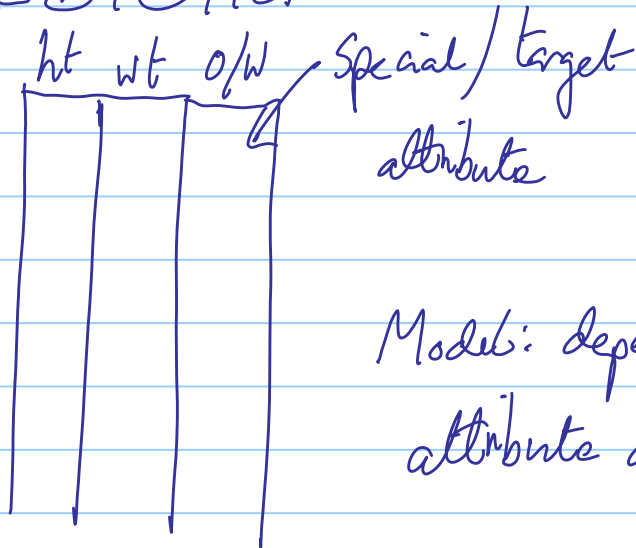 ht wt o/w Special / target
attribute
Model: depe
attribute